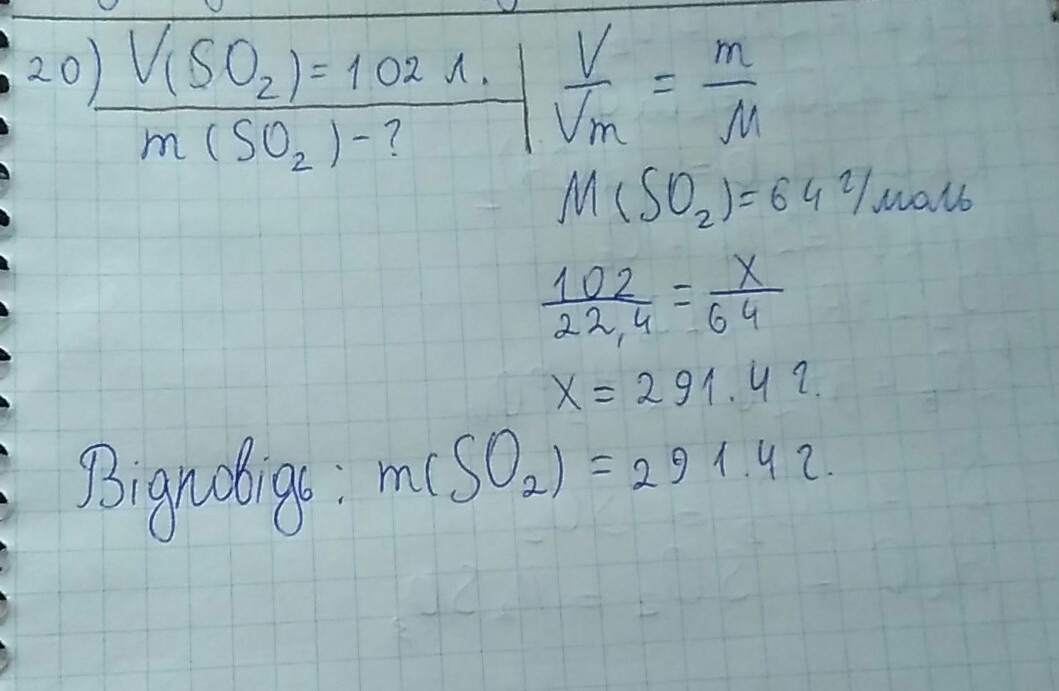 20) V(SO₂) = 102 л.
m(SO₂) - ?
V/Vm = m/M
M(SO₂) = 64 г/моль
102/22,4 = X/64
X = 291.4 г.
Відповідь: m(SO₂) = 291.4 г.